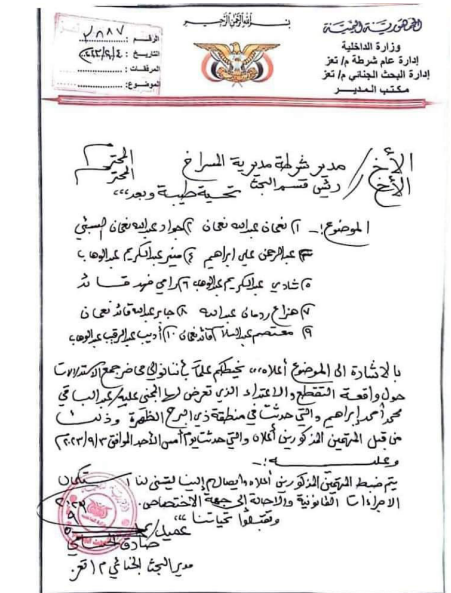 بسم الله الرحمن الرحيم
الجمهورية اليمنية
وزارة الداخلية
إدارة عام شرطة م/ تعز
إدارة البحث الجنائي م/ تعز
مكتب المدير
الرقم :
التاريخ :
المرفقات :
الموضوع:
الأخ / مدير شرطة مديرية المسراخ المحترم
الأخ / رئيس قسم البحث المحترم
تحية طيبة وبعد،،،
الموضوع:- ١) نعمان عبدالله نعمان ٢) جواد عبدالله نعمان
٣) عبدالرحمن علي ابراهيم ٤) منير عبدالكريم عبدالوهاب
٥) شادي عبدالكريم عبدالوهاب ٦) رامي فهد قائد
٧) هزاع ردمان عبدالله ٨) جابر عبدالله قائد نعمان
٩) معتصم عبدالسلام قائد نعمان ١٠) أديب عبدالرقيب عبدالوهاب
بالاشارة الى الموضوع أعلاه،،، نحيطكم علماً بأننا نوالي محاضر جمع الاستدلالات
حول واقعة التقطع والاعتداء الذي تعرض له المجني عليه/ عبدالباقي
محمد أحمد إبراهيم والتي حدثت في منطقة ذي البرح الظهرة وذلك
من قبل المتهمين المذكورين أعلاه والتي حدثت يوم أمس الأحد الموافق ٢٠٢٣/٩/٣
وعليه :-
يتم ضبط المتهمين المذكورين أعلاه وايصالهم إلينا ليتسنى لنا استكمال
الاجراءات القانونية والاحالة إلى جهة الاختصاص.
وتقبلوا تحياتنا،،،
عميل/
مدير البحث الجنائي م/ تعز